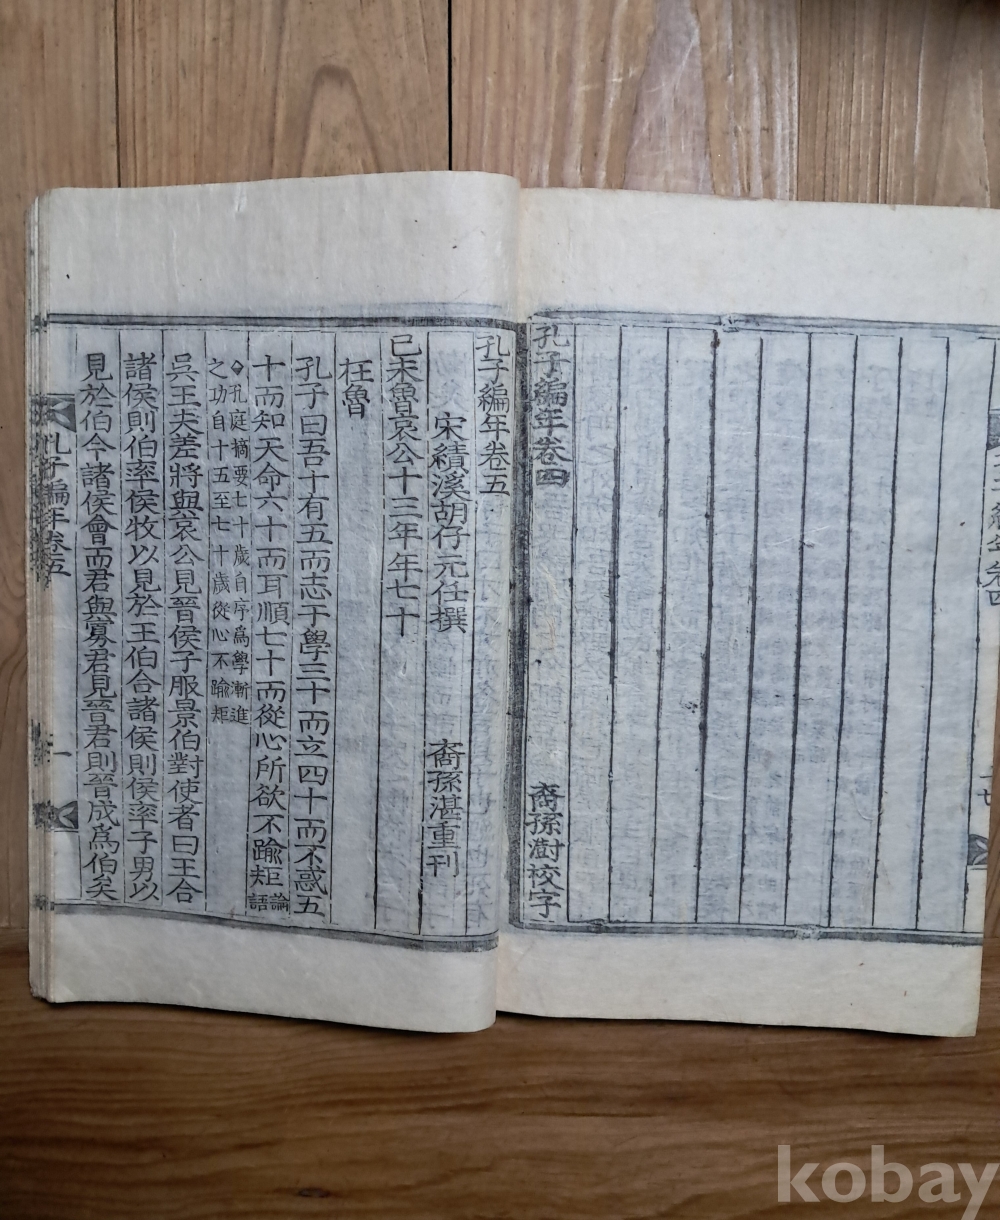 孔子編年卷四
裔孫澍校字
孔子編年卷五
宋績溪胡仔元任撰
裔孫湛重刊
己未魯哀公十三年年七十
在魯
孔子曰吾十有五而志于學三十而立四十而不惑五
十而知天命六十而耳順七十而從心所欲不踰矩論
語
孔庭摘要七十歲自序爲學漸進
之功自十五至七十歲從心不踰矩
吳王夫差將與哀公見晉侯子服景伯對使者曰王合
諸侯則伯率侯牧以見於王伯合諸侯則侯率子男以
見於伯今諸侯會而君與寡君見晉君則晉成爲伯矣
孔子編年卷五
一
kobay